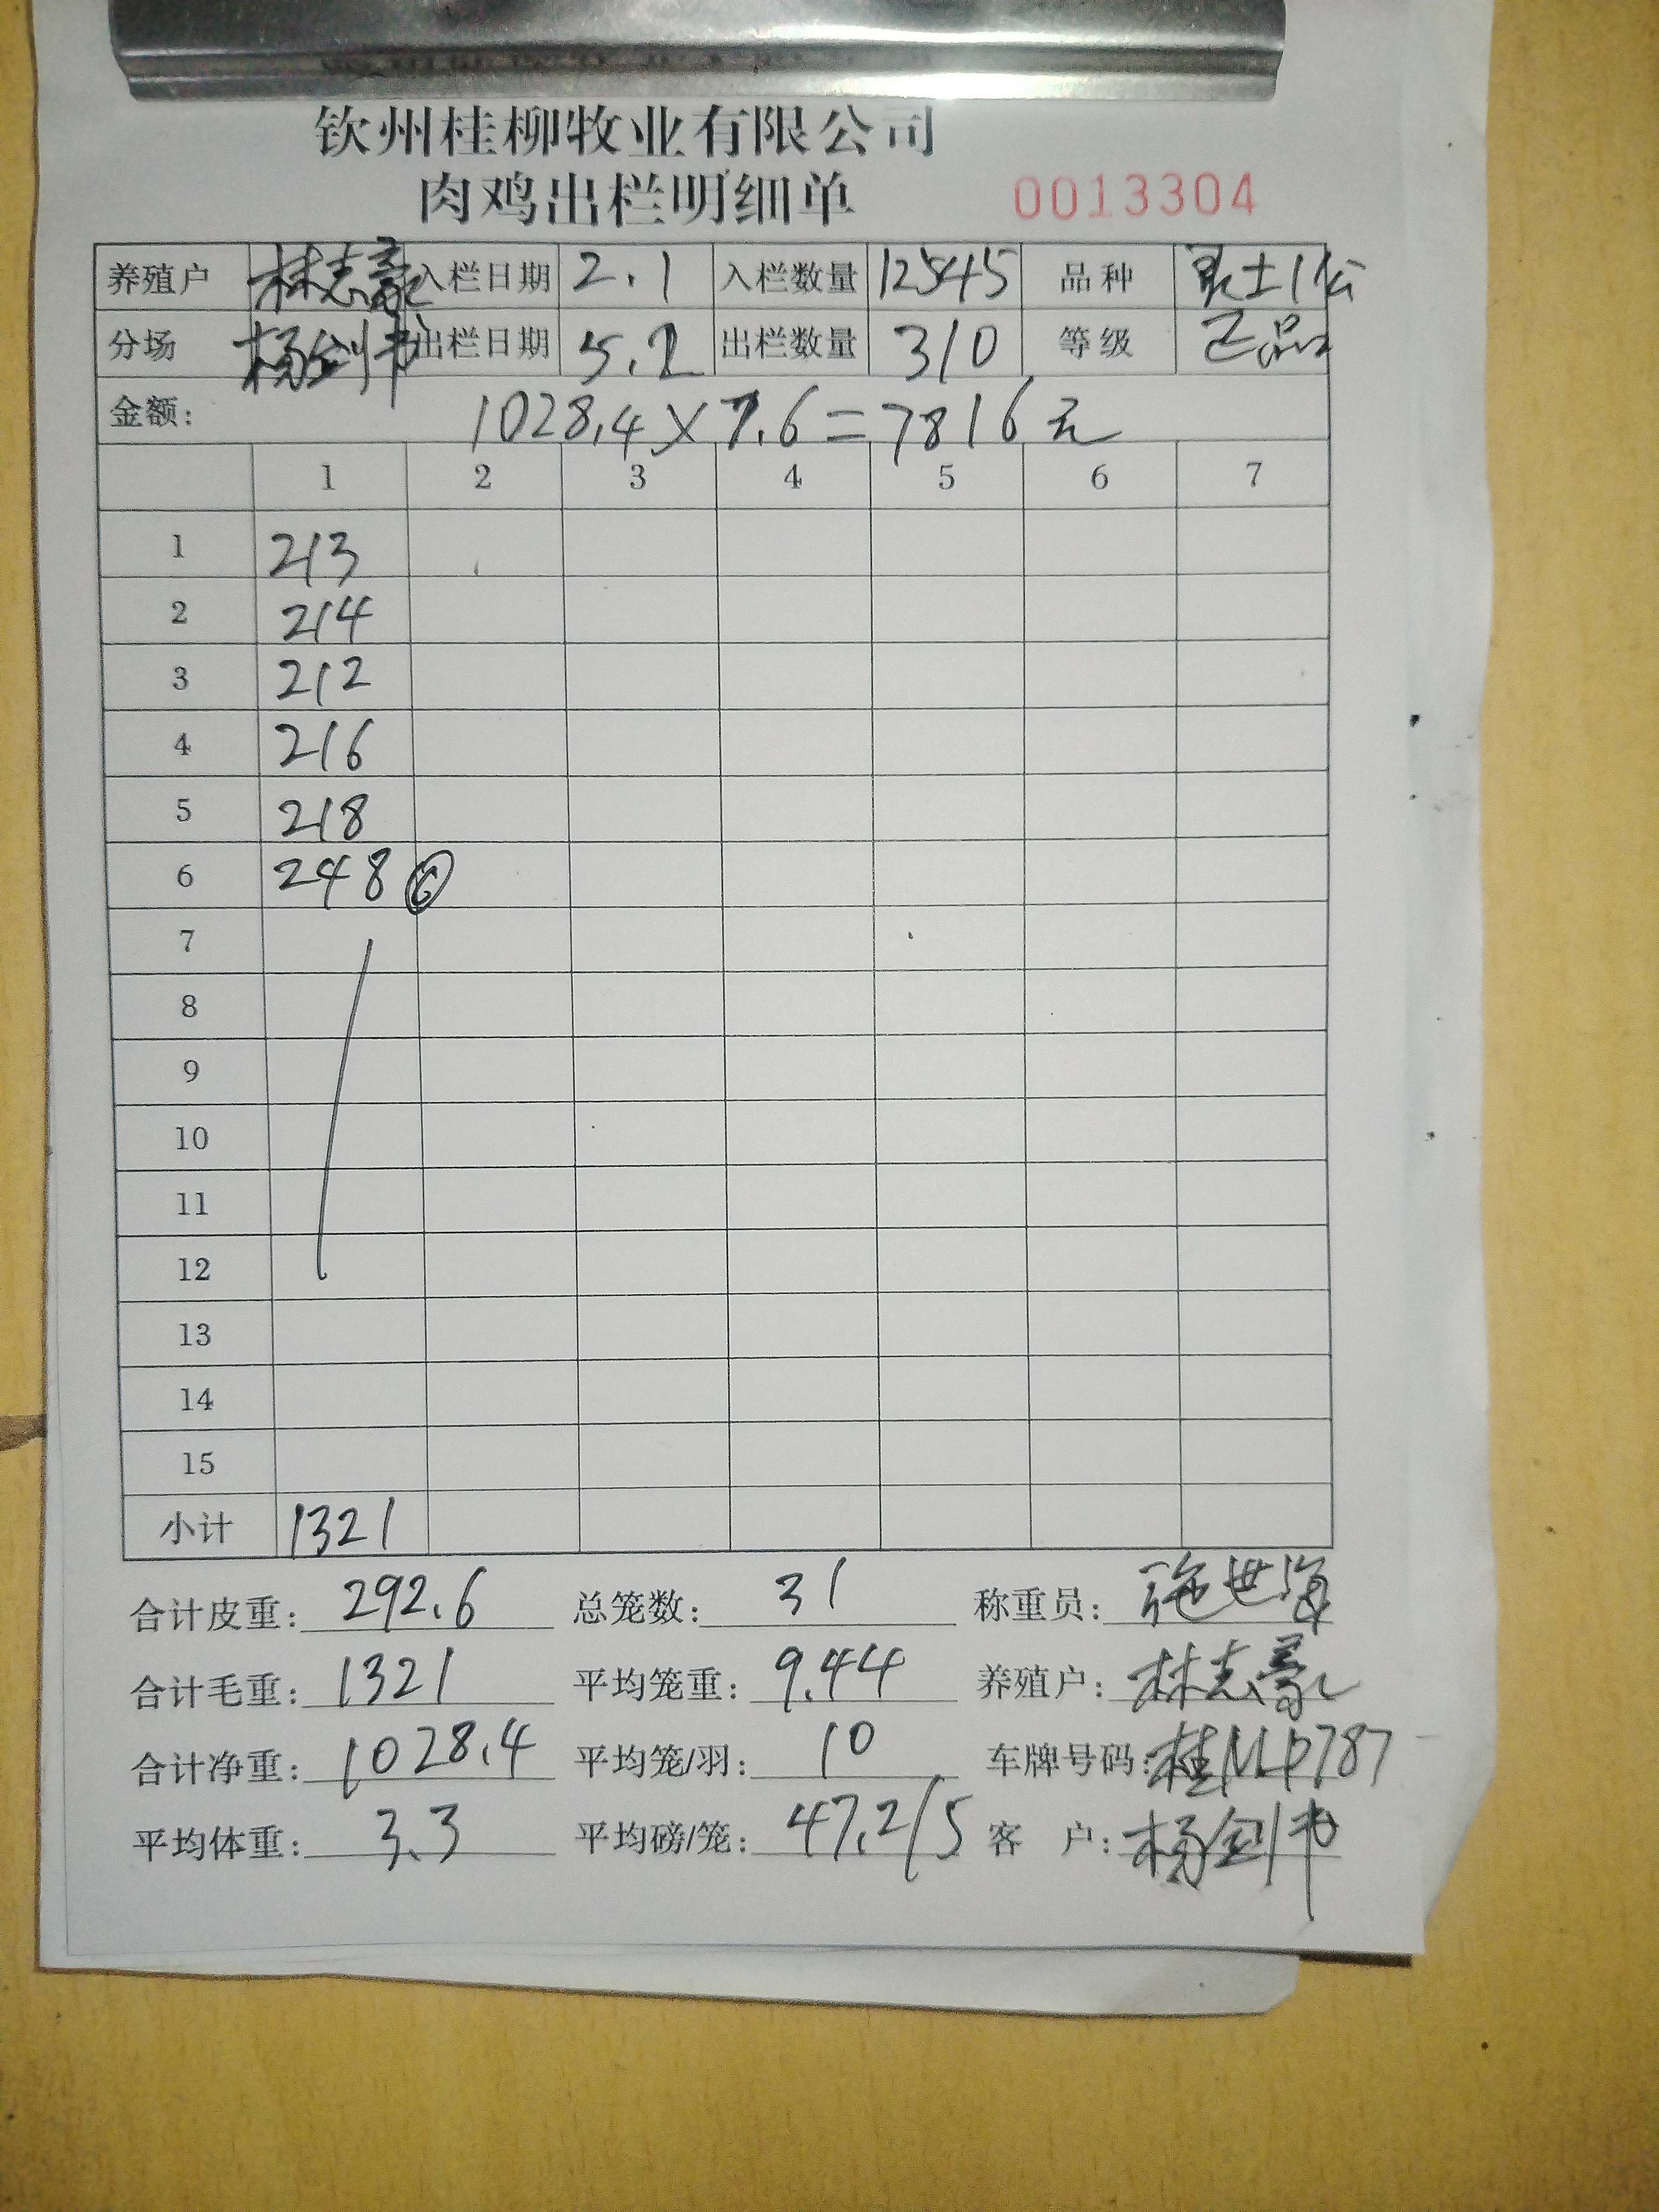 钦州桂柳牧业有限公司
肉鸡出栏明细单 0013304
养殖户 林志豪 入栏日期 2.1 入栏数量 12545 品种 土1公
分场 杨剑书 出栏日期 5.2 出栏数量 310 等级 正品
金额: 1028.4×7.6=7816元
1 2 3 4 5 6 7
1 213
2 214
3 212
4 216
5 218
6 248 ⑥
7
8
9
10
11
12
13
14
15
小计 1321
合计皮重: 292.6 总笼数: 31 称重员: 施世海
合计毛重: 1321 平均笼重: 9.44 养殖户: 林志豪
合计净重: 1028.4 平均笼/羽: 10 车牌号码: 桂NLP787
平均体重: 3.3 平均磅/笼: 47.2/5 客 户: 杨剑书